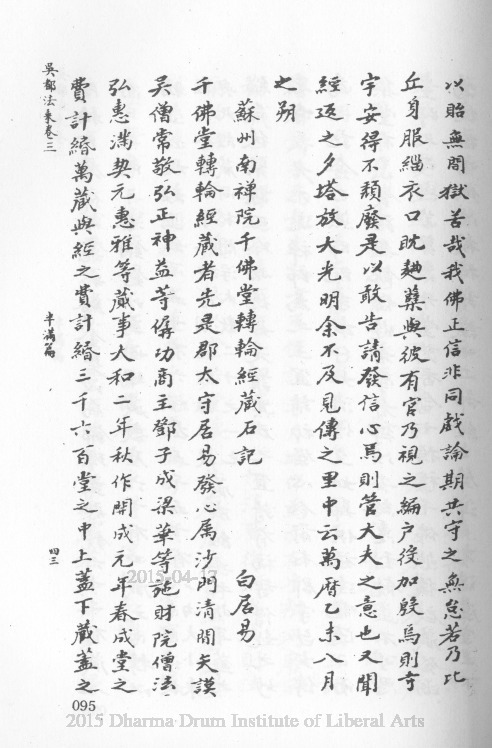 以貽無間獄苦哉我佛正信非同戲論期共守之無怠若乃比
丘身服緇衣口耽麯糵與彼有官乃視之編戶役加殷焉則寺
宇安得不頹廢是以敢告請發信心焉則管大夫之意也又聞
經返之夕塔放大光明余不及見傳之里中云萬曆乙未八月
之朔
蘇州南禪院千佛堂轉輪經藏石記 白居易
千佛堂轉輪經藏者先是郡太守居易發心屬沙門清閒矢謨
吳僧常敬弘正神益等僝功商主鄧子成梁華等施財院僧法
弘惠滿契元惠雅等蕆事大和二年秋作開成元年春成堂之
費計緡萬藏與經之費計緡三千六百堂之中上蓋下藏蓋之
吳都法乘卷三 半滿篇 四三
095
2015-04-17
2015 Dharma Drum Institute of Liberal Arts